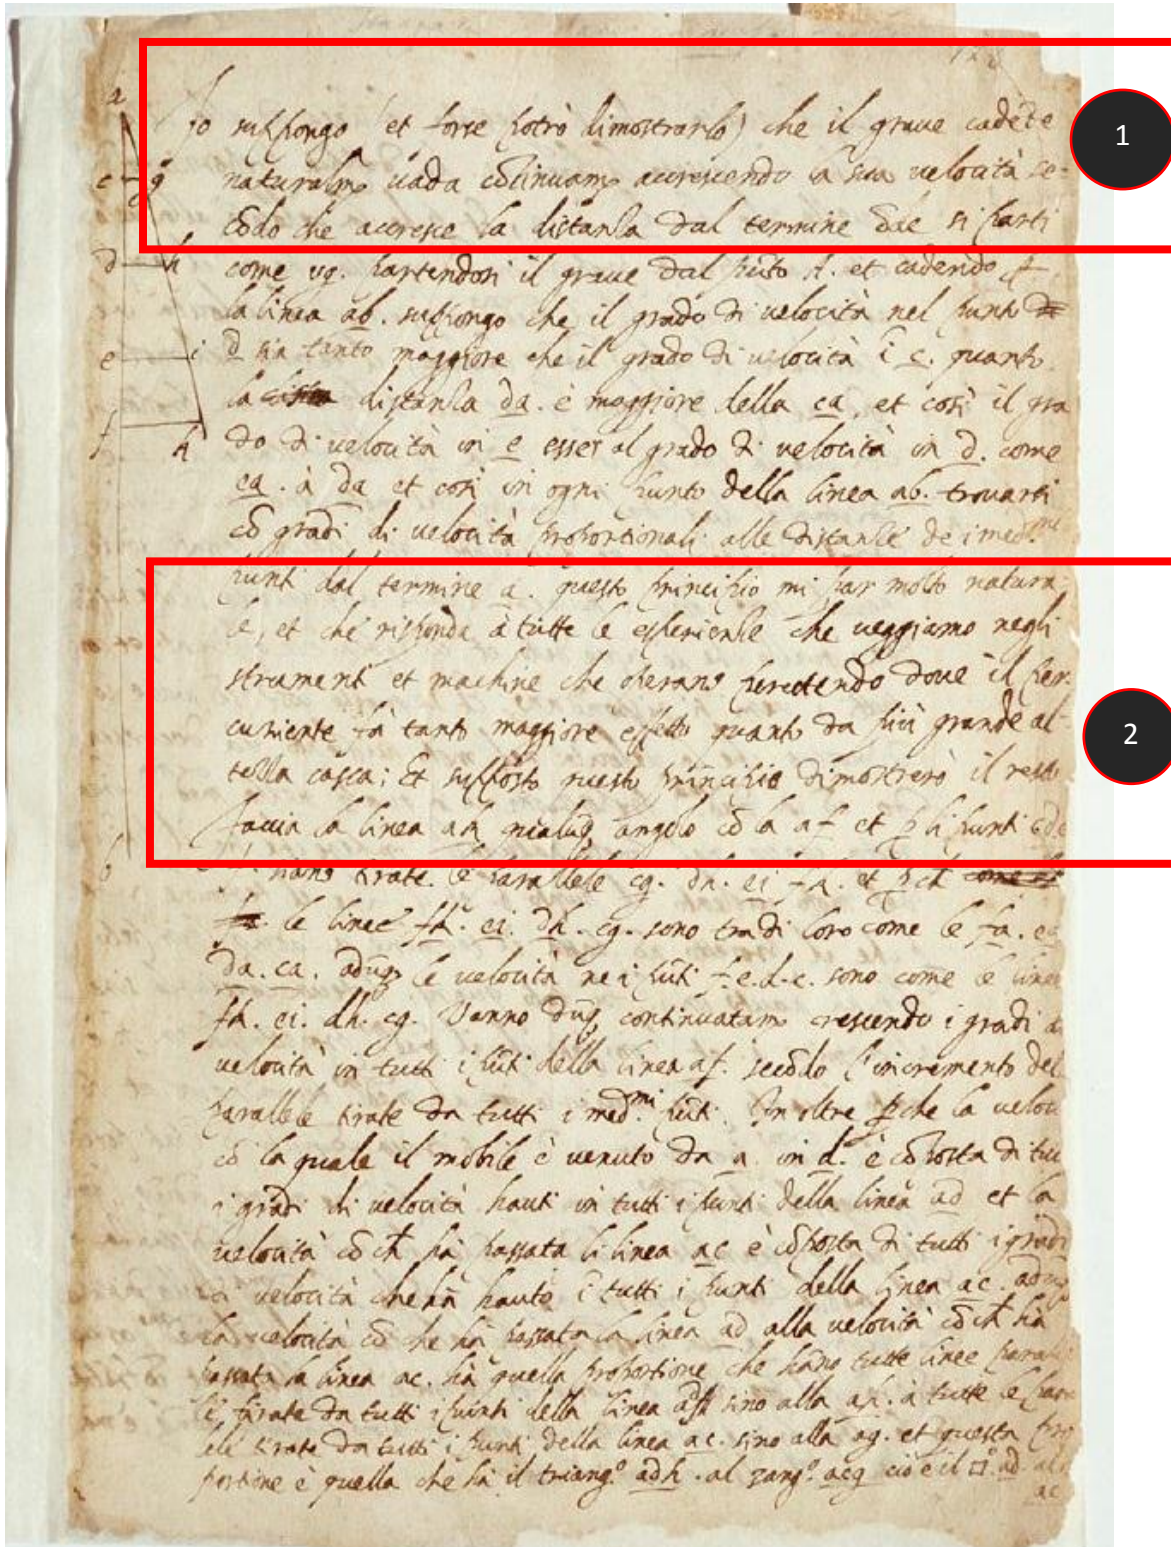 128
Io suppongo (et forse potrò dimostrarlo) che il graue cadēte
naturalm.e uada cōtinuam.e accrescendo la sua uelocità se-
cōdo che accresce la distanza dal termine ōde si partì
come ug. partendosi il graue dal pūto a. et cadendo p
la linea ab. suppongo che il grado di uelocità nel punto
d sia tanto maggiore che il grado di uelocità ī c. quanto
la distanza da. è maggiore della ca, et così il gra
do di uelocità in e esser al grado di uelocità in d. come
ea. à da et così in ogni punto della linea ab. trouarsi
cō gradi di uelocità proportionali alle distanze de i med.mi
punti dal termine a. questo principio mi par molto natura-
le, et che risponda à tutte le esperienze che ueggiamo negli
strumenti et machine che operano percotendo doue il per-
cuziente fà tanto maggiore effetto quanto da più grande al-
tezza casca; Et supposto questo principio dimostrerò il resto
faccia la linea ak qualūq angolo cō la af et p li punti c d e
f. siano tirate le parallele cg. dh. ei fk. et pch come
le linee fk. ei. dh. cg. sono tra di loro come le fa. ea
da. ca. adūq le uelocità ne i pūti f. e. d. c. sono come le linee
fk. ei. dh. cg. Vanno dūq continuatam.e crescendo i gradi d
uelocità in tutti i pūti della linea af. secōdo l'incremento del
parallele tirate da tutti i med.mi pūti. In oltre p che la ueloci
cō la quale il mobile è uenuto da a. in d. è cōposta di tut
i gradi di uelocità hauti in tutti i punti della linea ad et la
uelocità cō ch hà passata la linea ac è cōposta di tutti i gradi
di uelocità che hà hauto ī tutti i punti della linea ac. adūq
la uelocità cō che hà passata la linea ad alla uelocità cō ch hà
passata la linea ac. hà quella proportione che hāno tutte linee parall
le tirate da tutti i punti della linea ad sino alla ah. à tutte le para
lele tirate da tutti i punti della linea ac. sino alla ag. et questa pro
portione è quella che hà il triang.o adh. al triang.o acg cio è il □.o ad. al
ac
a
c g
d h
e i
f k
b
1
2